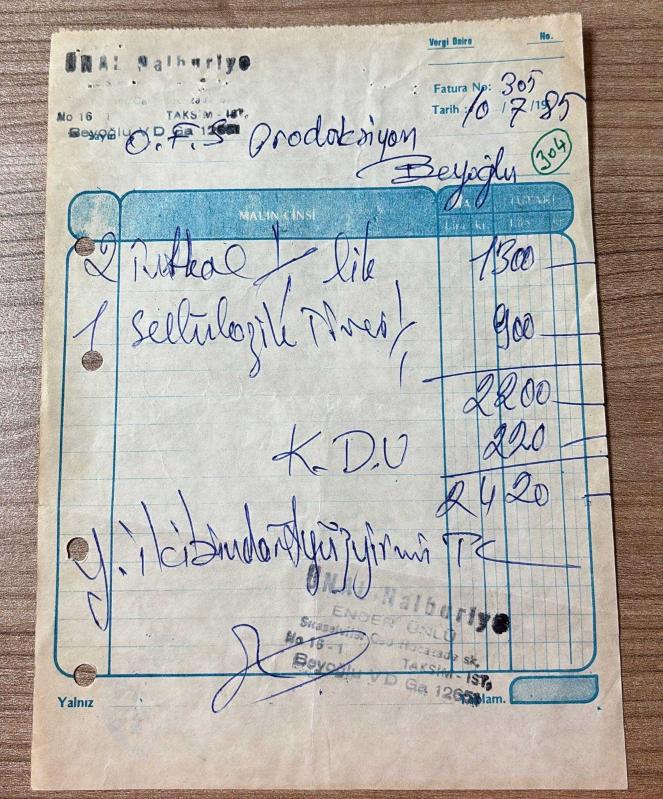 ÜNAL Nalburiye
Vergi Daire No.
Fatura No: 305
Tarih: 10/7/1985
No 16 1 TAKSİM - İST.
Beyoğlu V D Ga 12651
Sayın O.F.S Prodoksiyon
Beyoğlu
304
MALIN CİNSİ TUTARI
2 Tutkal 1/1 lik 1300
1 Selülozik Tiner 900
2200
K.D.V 220
2420
Y. ikibindörtyüzyirmi TL
ÜNAL Nalburiye
ENDER ÜNLÜ
Sıraselviler Cad. sk.
No 16-1 TAKSİM - İST.
Beyoğlu V D Ga 12651
Yalnız Toplam.